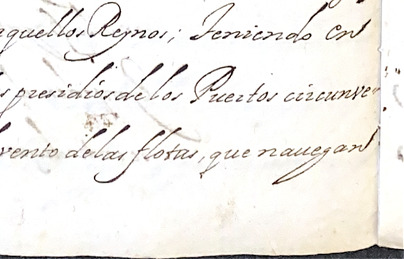 aquellos Reynos; Teniendo en
s presidios de los Puertos circunve-
vento de las flotas, que nauegan